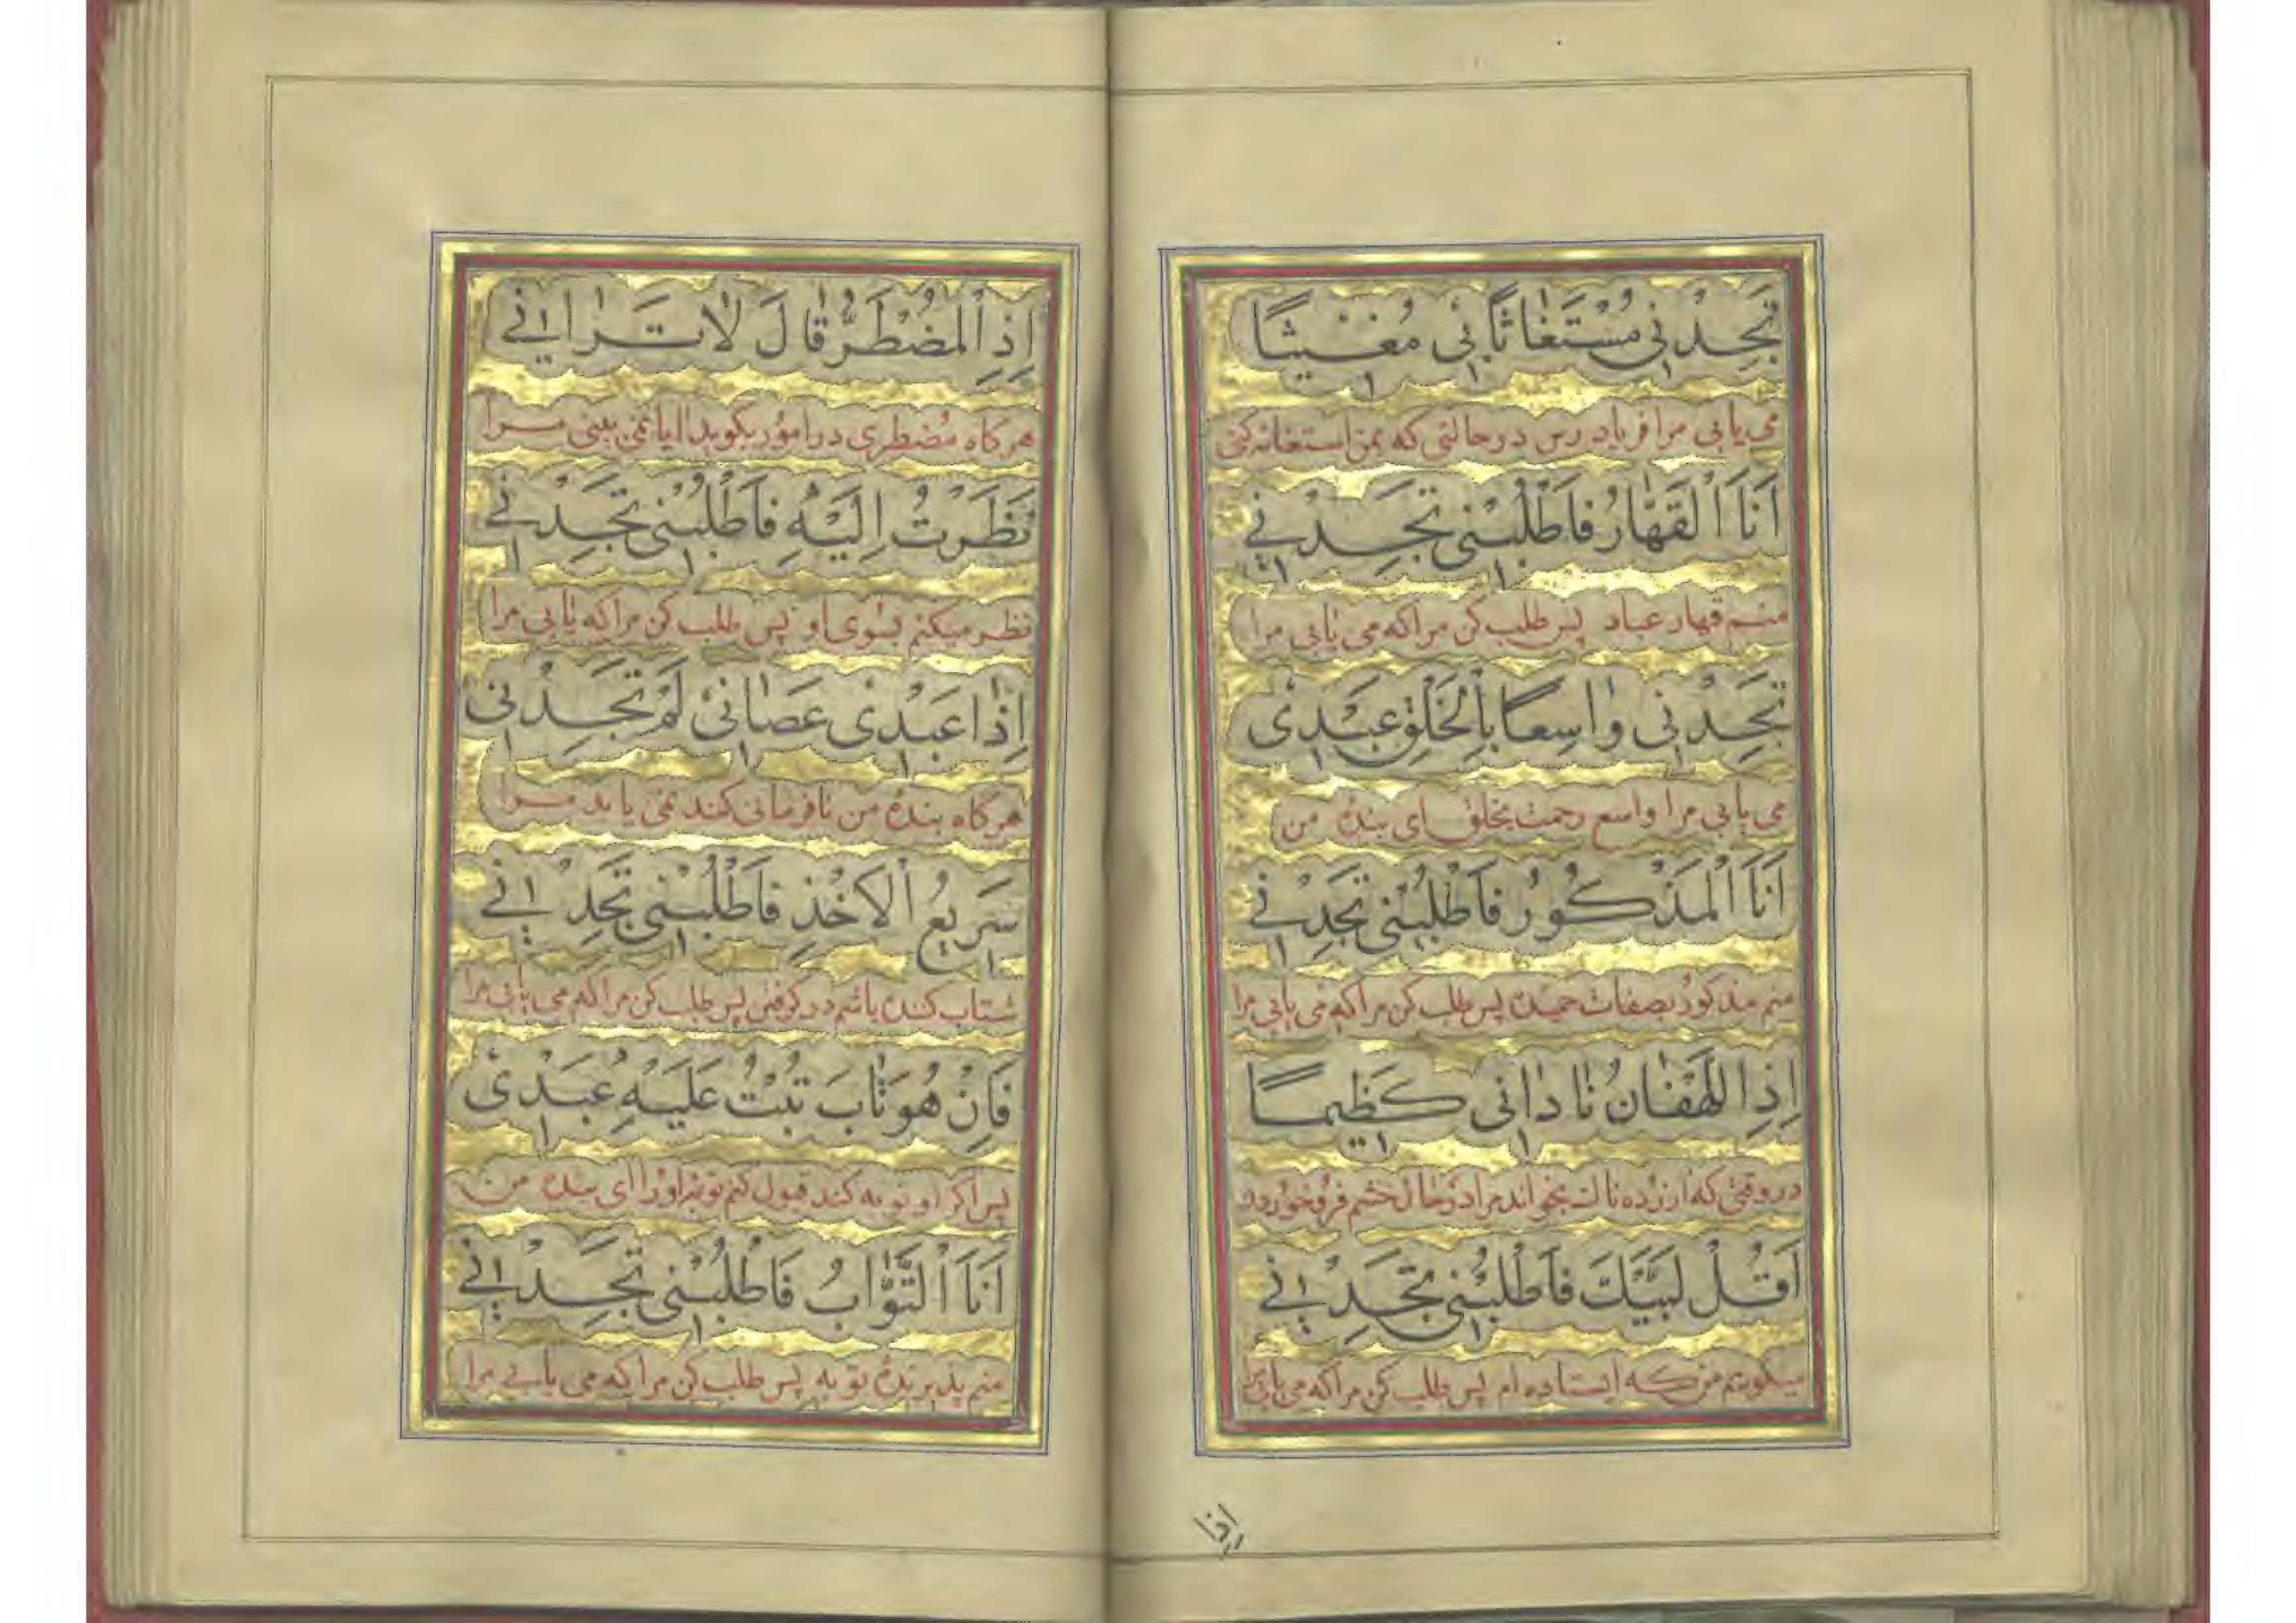 تَجِدْنِی مُسْتَغٰاثًا بِی مُغِیثًا
می یابی مرا فریاد رس در حالتی که بمن استغاثه کنی
اَنَا الْقَهّٰارُ فَاطْلُبْنِی تَجِدْنِی
منم قهار عباد پس طلب کن مرا که می یابی مرا
تَجِدْنِی وٰاسِعًا بِالْخَلْقِ عَبْدِی
می یابی مرا واسع رحمت بخلق ای بندهٔ من
اَنَا الْمَذْکُورُ فَاطْلُبْنِی تَجِدْنِی
منم مذکور بصفات حمیده پس طلب کن مرا که می یابی مرا
اِذِ اللَّهْفٰانُ نٰادٰانِی کَظِیمًا
در وقتی که ازرده نالت بخواند مرا در حال خشم فرو خوردن
اَقُلْ لَبَّیْکَ فَاطْلُبْنِی تَجِدْنِی
میکویم من که ایستاده ام پس طلب کن مرا که می یابی مرا
اِذَا
اِذِ الْمُضْطَرُّ قٰالَ لَاٰ تَرٰانِی
هر کاه مضطری در امور بکوید ایا نمی بینی مرا
نَظَرْتُ اِلَیْهِ فَاطْلُبْنِی تَجِدْنِی
نظر میکنم بسوی او پس طلب کن مرا که یابی مرا
اِذٰا عَبْدِی عَصٰانِی لَمْ تَجِدْنِی
هر کاه بندهٔ من نافرمانی کند نمی یابد مرا
سَرِیعُ الْاَخْذِ فَاطْلُبْنِی تَجِدْنِی
شتاب کننده باشم در کرفتن پس طلب کن مرا که می یابی مرا
فَاِنْ هُوَ تٰابَ تُبْتُ عَلَیْهِ عَبْدِی
پس اکر او توبه کند قبول کنم توبهٔ او را ای بندهٔ من
اَنَا التَّوّٰابُ فَاطْلُبْنِی تَجِدْنِی
منم پذیرندهٔ توبه پس طلب کن مرا که می یابی مرا